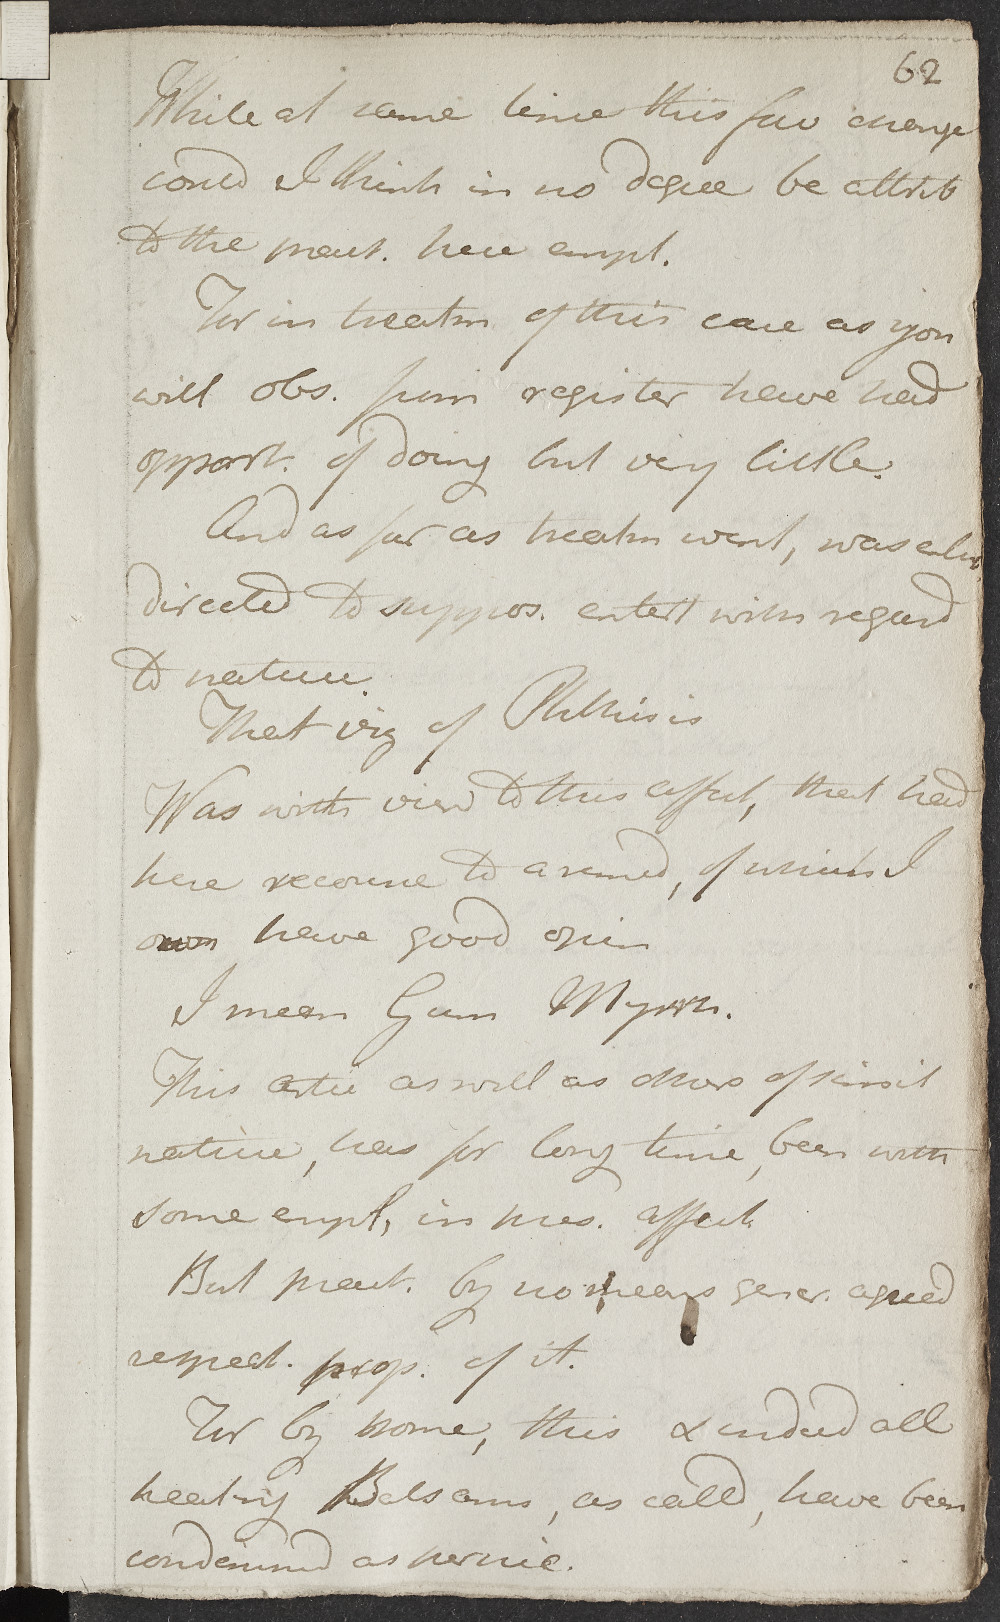 62
While at same time this fav change
could I think in no degree be attrib
to the pract. here empl.
For in treatm of this case as you
will obs. from register have had
opport. of doing but very little.
And as far as treatm went, was
directed to suppos. entert with regard
to nature.
That viz of Phthisis
Was with view to this affect, that had
here recourse to a remed, of which I
own have good opin
I mean Gum Myrrh.
This artic as well as others of simil
nature, has for long time, been with
some empl, in pres. affect
But pract. by no means gener. agreed
respect. prop. of it.
For by some, this & indeed all
heating Balsams, as calld, have been
condemned as pernic.